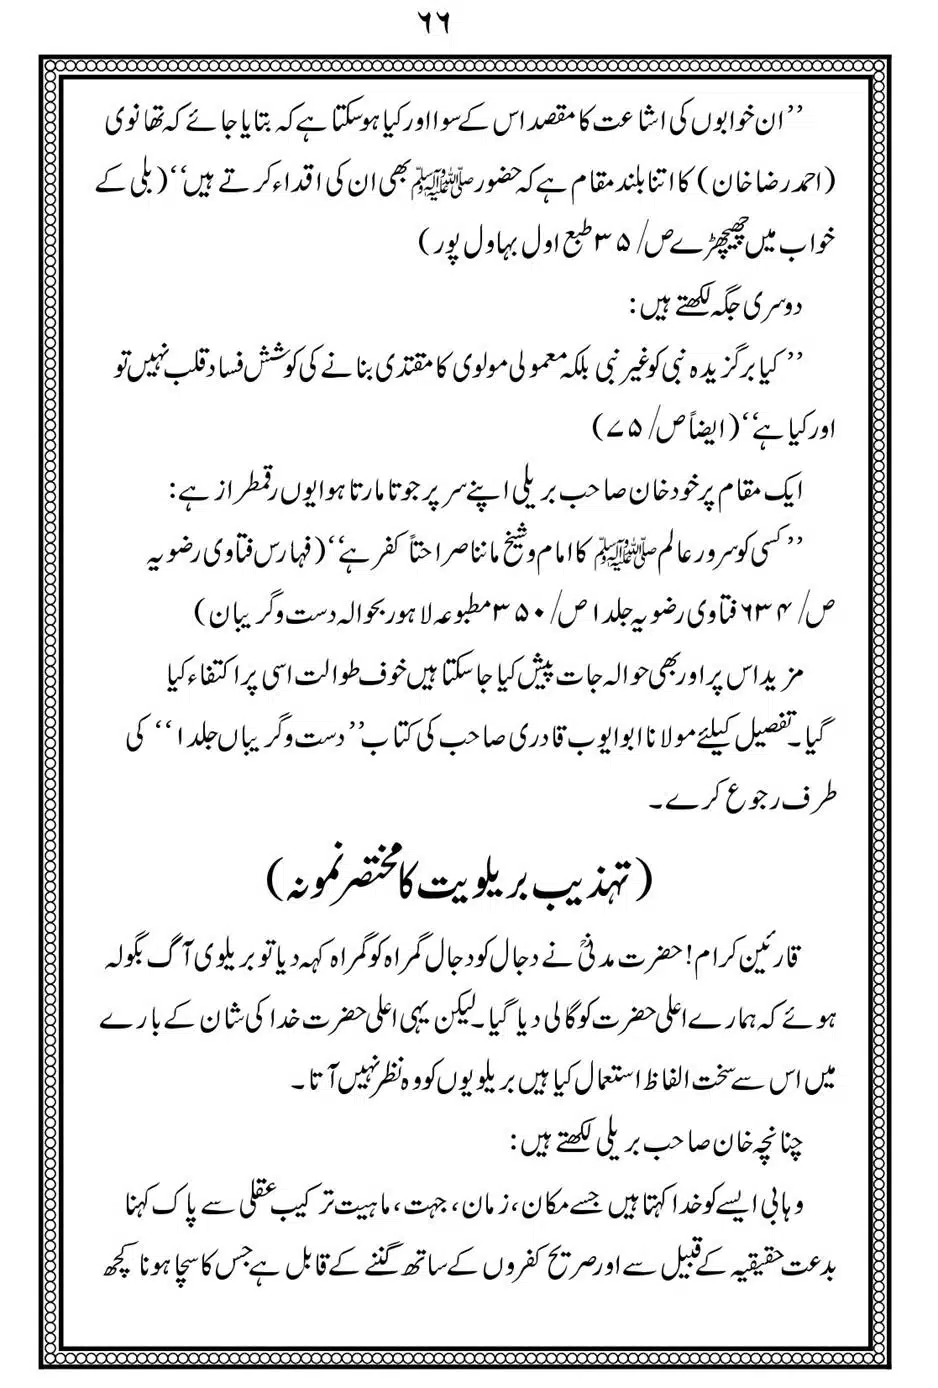 ۶۶
’’ان خوابوں کی اشاعت کا مقصد اس کے سوا اور کیا ہوسکتا ہے کہ بتایا جائے کہ تھانوی
(احمد رضا خان) کا اتنا بلند مقام ہے کہ حضور ﷺ بھی ان کی اقداء کرتے ہیں‘‘(بلی کے
خواب میں چھیچھڑے ص/۳۵ طبع اول بہاول پور)
دوسری جگہ لکھتے ہیں:
’’کیا برگزیدہ نبی کو غیر نبی بلکہ معمولی مولوی کا مقتدی بنانے کی کوشش فساد قلب نہیں تو
اور کیا ہے‘‘(ایضاً ص/۷۵)
ایک مقام پر خود خان صاحب بریلی اپنے سر پر جوتا مارتا ہوا یوں رقمطراز ہے:
’’کسی کو سرور عالم ﷺ کا امام و شیخ ماننا صراحتاً کفر ہے‘‘(فہارس فتاوی رضویہ
ص/۶۳۴ فتاوی رضویہ جلد ۱ ص/۳۵۰ مطبوعہ لاہور بحوالہ دست و گریبان)
مزید اس پر اور بھی حوالہ جات پیش کیا جاسکتا ہیں خوف طوالت اسی پر اکتفاء کیا
گیا۔ تفصیل کیلئے مولانا ابو ایوب قادری صاحب کی کتاب ’’دست و گریباں جلد ۱‘‘ کی
طرف رجوع کرے۔
(تہذیب بریلویت کا مختصر نمونہ)
قارئین کرام! حضرت مدنیؒ نے دجال کو دجال گمراہ کو گمراہ کہہ دیا تو بریلوی آگ بگولہ
ہوئے کہ ہمارے اعلی حضرت کو گالی دیا گیا۔ لیکن یہی اعلی حضرت خدا کی شان کے بارے
میں اس سے سخت الفاظ استعمال کیا ہیں بریلویوں کو وہ نظر نہیں آتا۔
چنانچہ خان صاحب بریلی لکھتے ہیں:
وہابی ایسے کو خدا کہتا ہیں جسے مکان، زمان، جہت، ماہیت ترکیب عقلی سے پاک کہنا
بدعت حقیقیہ کے قبیل سے اور صریح کفروں کے ساتھ گننے کے قابل ہے جس کا سچا ہونا کچھ